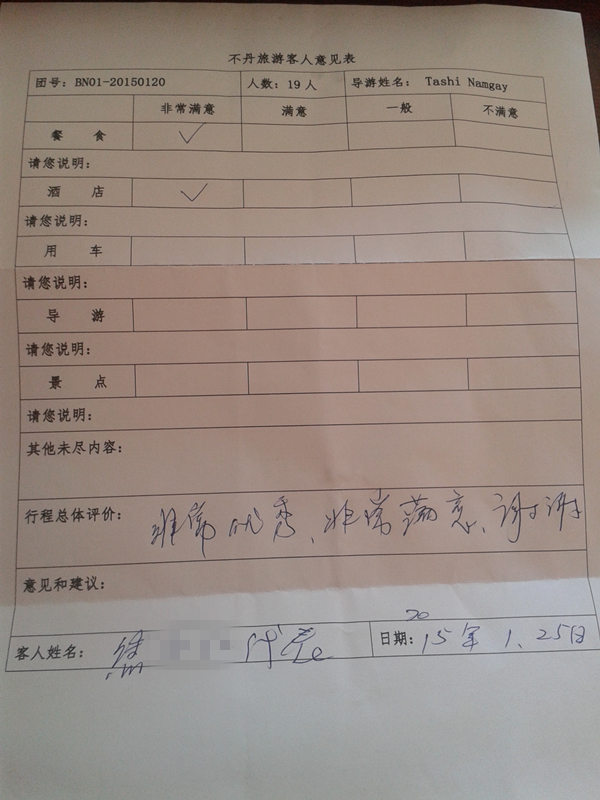 不丹旅游客人意见表
团号：BN01-20150120 人数：19人 导游姓名： Tashi Namgay
非常满意 满意 一般 不满意
餐 食 ✓
请您说明：
酒 店 ✓
请您说明：
用 车
请您说明：
导 游
请您说明：
景 点
请您说明：
其他未尽内容：
行程总体评价： 非常优秀、非常满意、谢谢
意见和建议：
客人姓名： 日期： 2015年1.25日